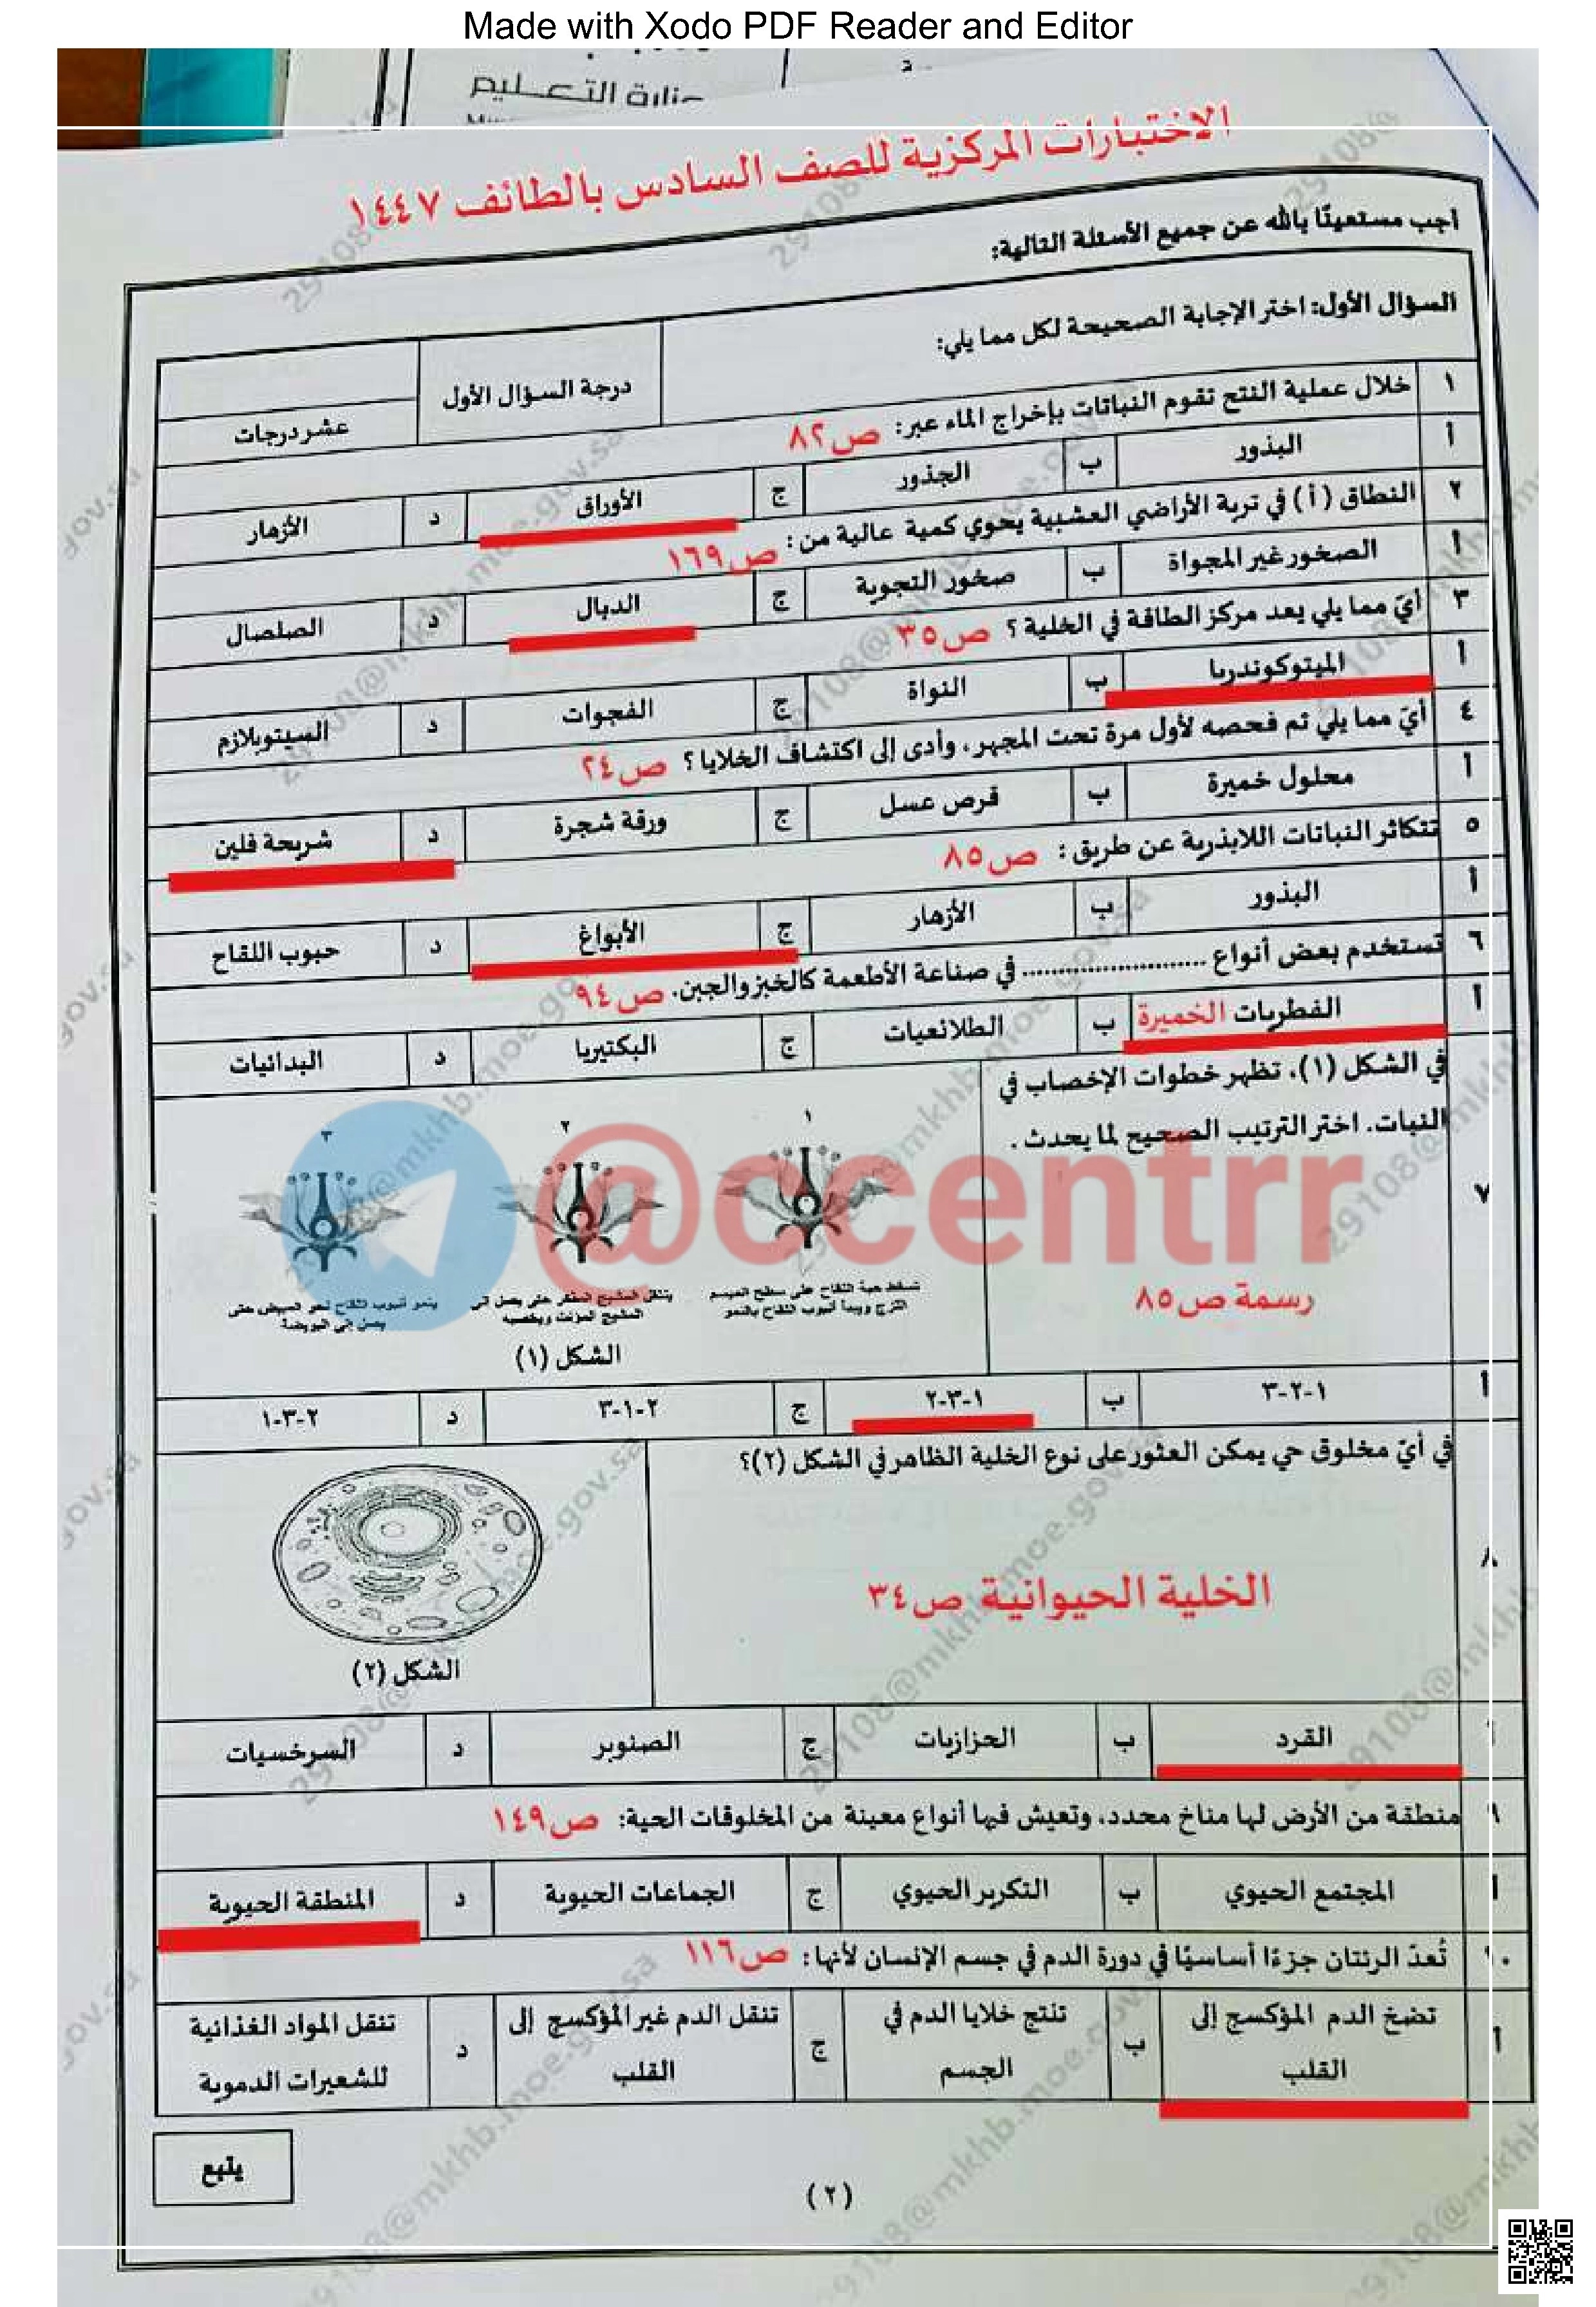 Made with Xodo PDF Reader and Editor
وزارة التعليم
الاختبارات المركزية للصف السادس بالطائف ١٤٤٧
أجب مستعينًا بالله عن جميع الأسئلة التالية:
السؤال الأول: اختر الإجابة الصحيحة لكل مما يلي:
درجة السؤال الأول
عشر درجات
١ خلال عملية النتح تقوم النباتات بإخراج الماء عبر: ص٨٢
أ البذور ب الجذور ج الأوراق د الأزهار
٢ النطاق (أ) في تربة الأراضي العشبية يحوي كمية عالية من: ص١٦٩
أ الصخور غير المجواة ب صخور التجوية ج الدبال د الصلصال
٣ أيّ مما يلي يعد مركز الطاقة في الخلية؟ ص٣٥
أ الميتوكوندريا ب النواة ج الفجوات د السيتوبلازم
٤ أيّ مما يلي تم فحصه لأول مرة تحت المجهر، وأدى إلى اكتشاف الخلايا؟ ص٢٤
أ محلول خميرة ب قرص عسل ج ورقة شجرة د شريحة فلين
٥ تتكاثر النباتات اللابذرية عن طريق: ص٨٥
أ البذور ب الأزهار ج الأبواغ د حبوب اللقاح
٦ تستخدم بعض أنواع .......................... في صناعة الأطعمة كالخبز والجبن. ص٩٤
أ الفطريات الخميرة ب الطلائعيات ج البكتيريا د البدائيات
٧ في الشكل (١)، تظهر خطوات الإخصاب في
النبات. اختر الترتيب الصحيح لما يحدث.
رسمة ص٨٥
١ ٢ ٣
تسقط حبة اللقاح على سطح الميسم
اللزج ويبدأ أنبوب اللقاح بالنمو
ينتقل المشيج المذكر حتى يصل إلى
المشيج المؤنث ويخصبه
ينمو أنبوب اللقاح نحو المبيض حتى
يصل إلى البويضة
الشكل (١)
@ccentrr
أ ١-٢-٣ ب ١-٣-٢ ج ٢-١-٣ د ٢-٣-١
٨ في أيّ مخلوق حي يمكن العثور على نوع الخلية الظاهر في الشكل (٢)؟
الخلية الحيوانية ص٣٤
الشكل (٢)
أ القرد ب الحزازيات ج الصنوبر د السرخسيات
٩ منطقة من الأرض لها مناخ محدد، وتعيش فيها أنواع معينة من المخلوقات الحية: ص١٤٩
أ المجتمع الحيوي ب التكرير الحيوي ج الجماعات الحيوية د المنطقة الحيوية
١٠ تُعدّ الرئتان جزءًا أساسيًا في دورة الدم في جسم الإنسان لأنها: ص١١٦
أ تضخ الدم المؤكسج إلى القلب ب تنتج خلايا الدم في الجسم ج تنقل الدم غير المؤكسج إلى القلب د تنقل المواد الغذائية للشعيرات الدموية
يتبع
(٢)
29108@mkhb.moe.gov.sa